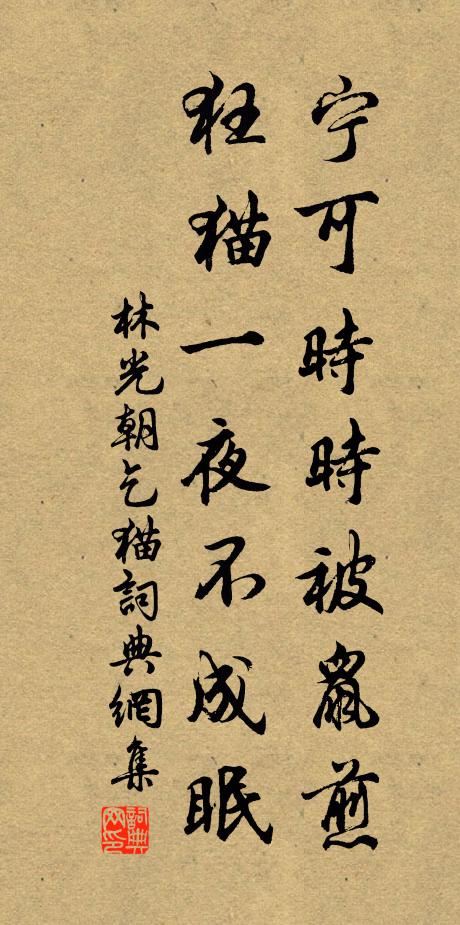 宁可時時被鼠煎
狂猫一夜不成眠
林光朝乞猫詞典網集
詞典网印